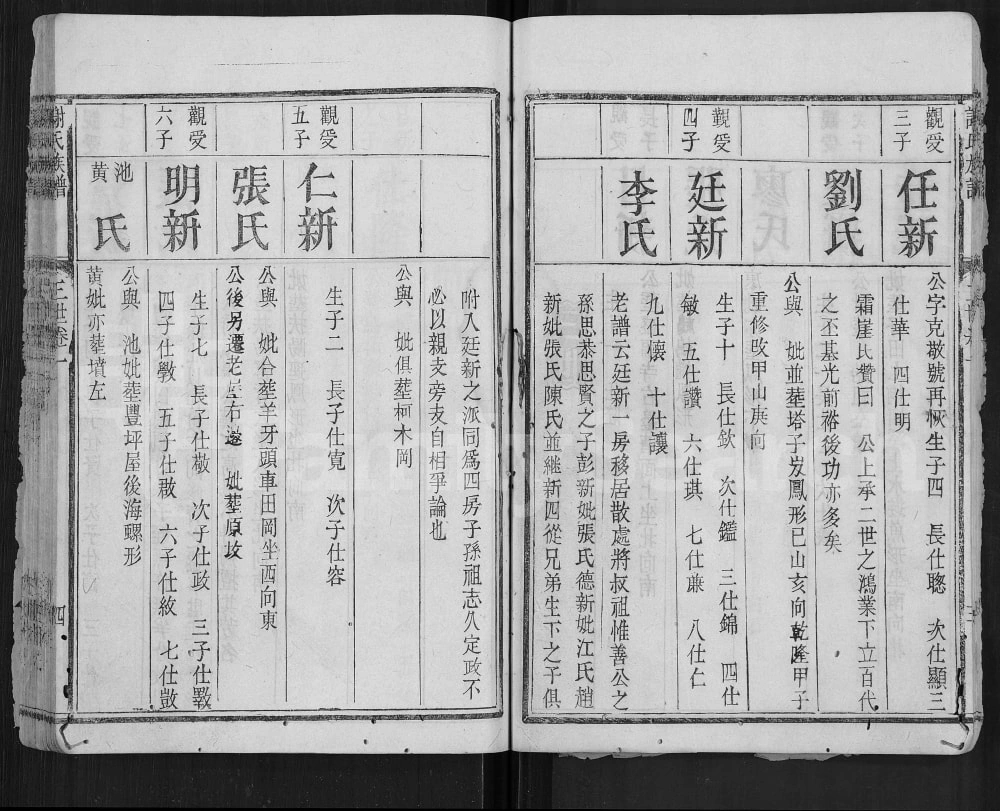 觀受
三子
任新
公字克敬號再恢生子四　長仕聰　次仕顯三
仕華　四仕明
霜崖氏贊曰　公上承二世之鴻業下立百代
之丕基光前裕後功亦多矣
劉氏
公與　妣並葬塔子岌鳳形巳山亥向乾隆甲子
重修改甲山庚向
觀受
四子
廷新
生子十　長仕欽　次仕鑑　三仕錦　四仕
敏　五仕讚　六仕琪　七仕亷　八仕仁
九仕懷　十仕讓
李氏
老譜云廷新一房移居散處將叔祖惟善公之
孫思恭思賢之子彭新妣張氏德新妣江氏趙
新妣張氏陳氏並繼新四從兄弟生下之子俱
附入廷新之派同爲四房子孫祖志久定政不
必以親支旁支自相爭論也
公與　妣俱葬柯木岡
觀受
五子
仁新
生子二　長子仕寬　次子仕容
張氏
公與　妣合葬羊牙頭車田岡坐西向東
公後另遷老屋右邊　妣葬原坟
觀受
六子
明新
生子七　長子仕敬　次子仕政　三子仕斅
四子仕斆　五子仕啟　六子仕紋　七仕鼓
池
黄
氏
公與　池妣葬豐坪屋後海螺形
黄妣亦葬墳左
謝氏族譜
三世卷一
四